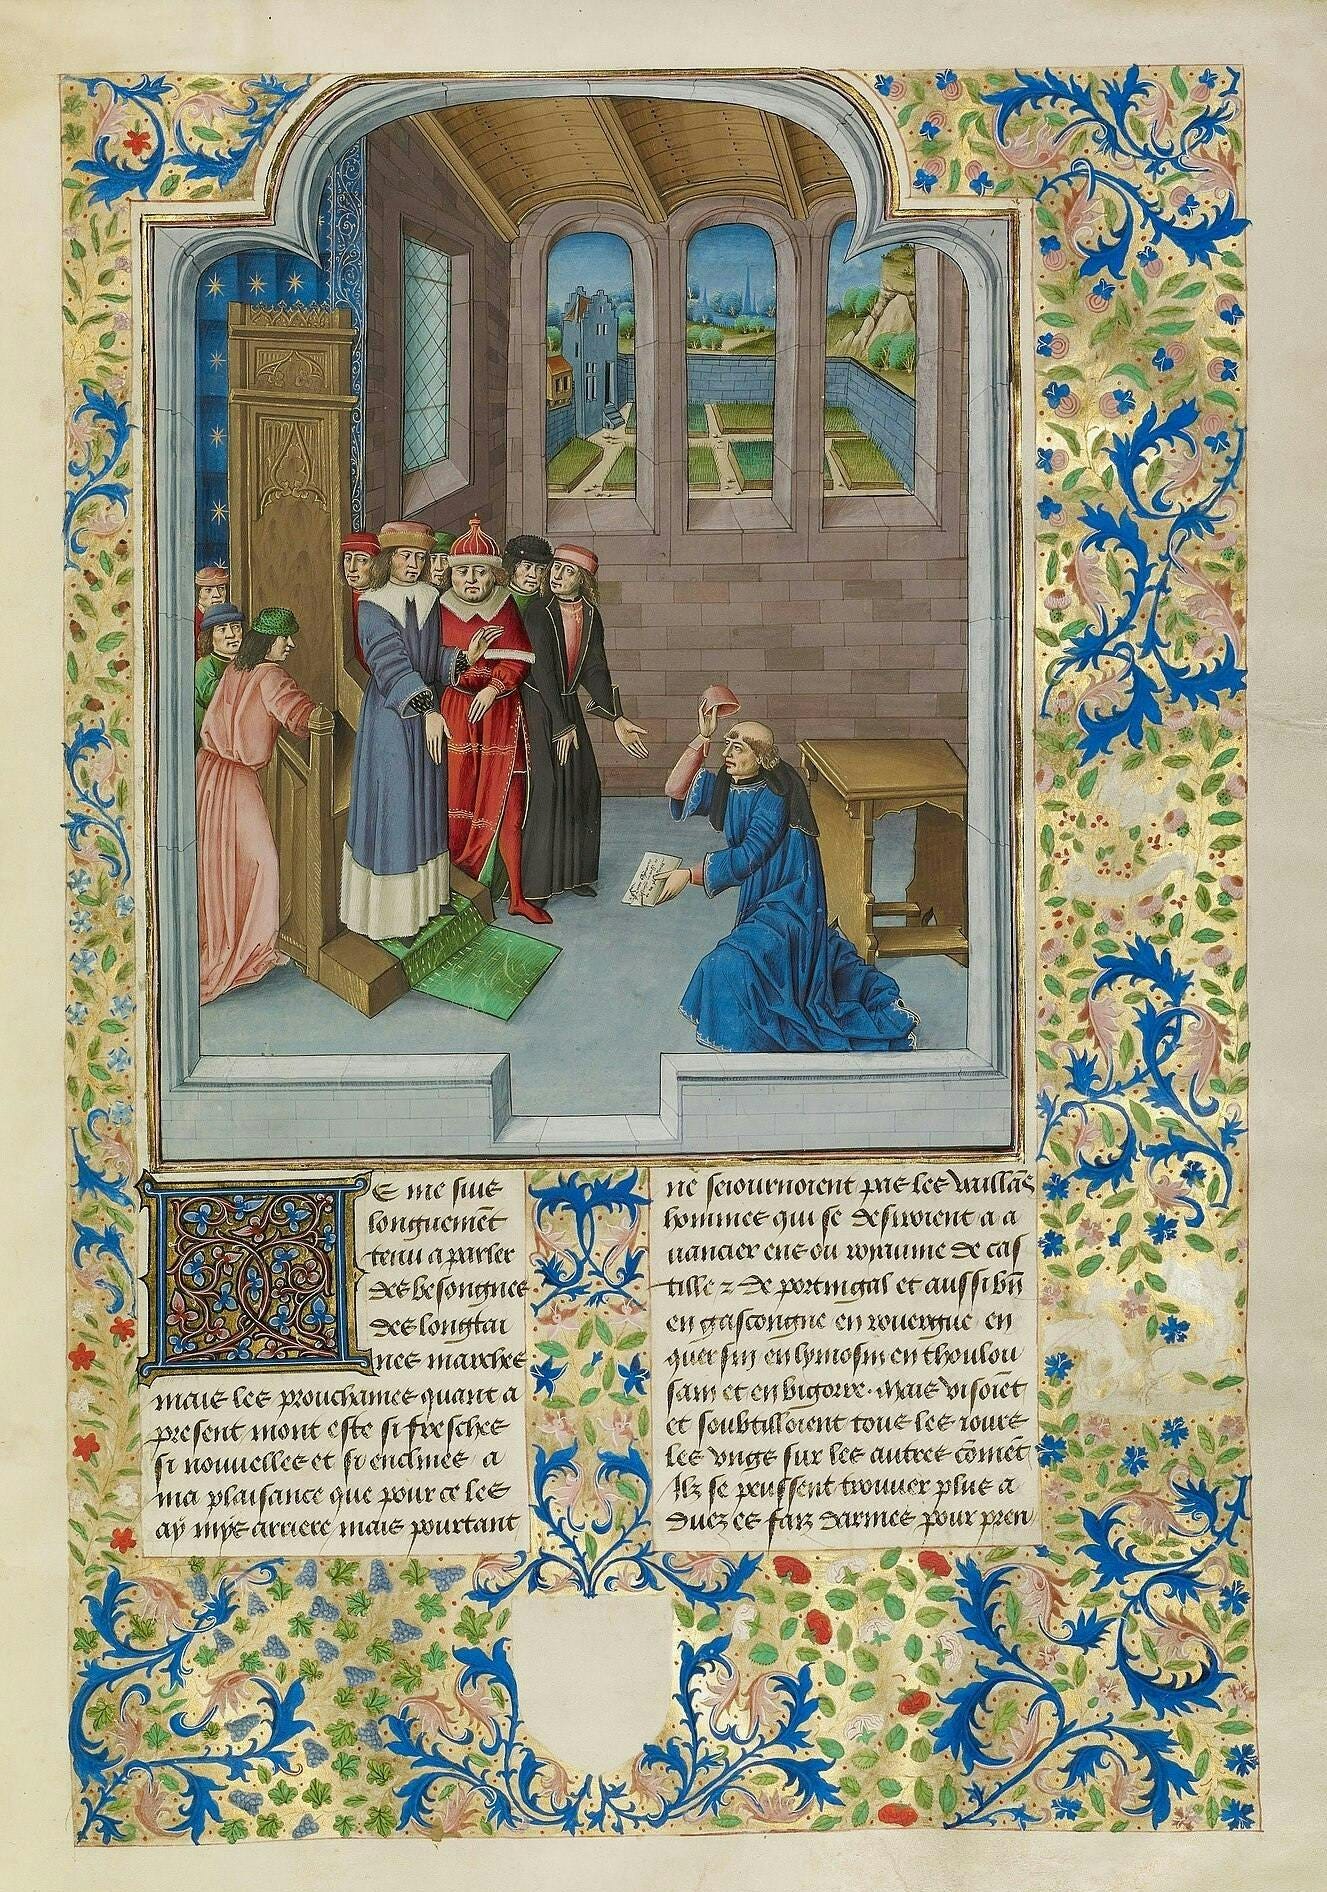 E me suis
longuemēt
tenu a parler
des besongnes
des longtai
nes marches
mais les prouchaines quant a
present mont este si fresches
si nouuelles et si enclines a
ma plaisance que pour ce les
ay mys arriere mais pourtant
ne seiournoient pas les vaillās
hommes qui se desiroient a a
uancier ens ou royaume de cas
tille z de portingal et aussi bn̄
en gascongne en rouergue en
quersin en lymosin en thoulou
sain et en bigorre. Mais visoiēt
et soubtilloient tous les iours
les vngs sur les autres cōmēt
Ilz se peussent trouuer plus a
duez es faiz darmes pour pren